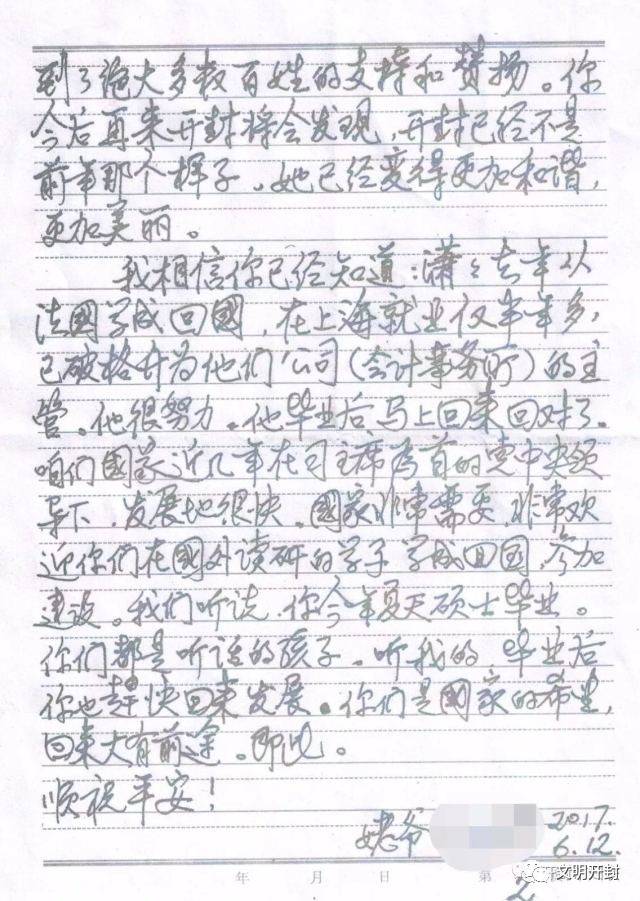 到了绝大多数百姓的支持和赞扬。你
今后再来开封将会发现，开封已经不是
前年那个样子，她已经变得更加和谐，
更加美丽。
我相信你已经知道：潇々去年从
法國学成回國，在上海就业仅半年多，
已破格升为他们公司（会计事务所）的主
管。他很努力。他毕业后马上回来回对了。
咱们國家近几年在习主席为首的党中央领
导下，发展地很快。國家非常需要，非常欢
迎你们在國外读研的学子学成回国，参加
建设。我们听说，你今年夏天硕士毕业。
你们都是听话的孩子，听我的，毕业后
你也赶快回来发展。你们是國家的希望，
回来大有前途。即此。
顺祝平安！
姥爷
2017.
6.12.
年 月 日 第
2
文明开封